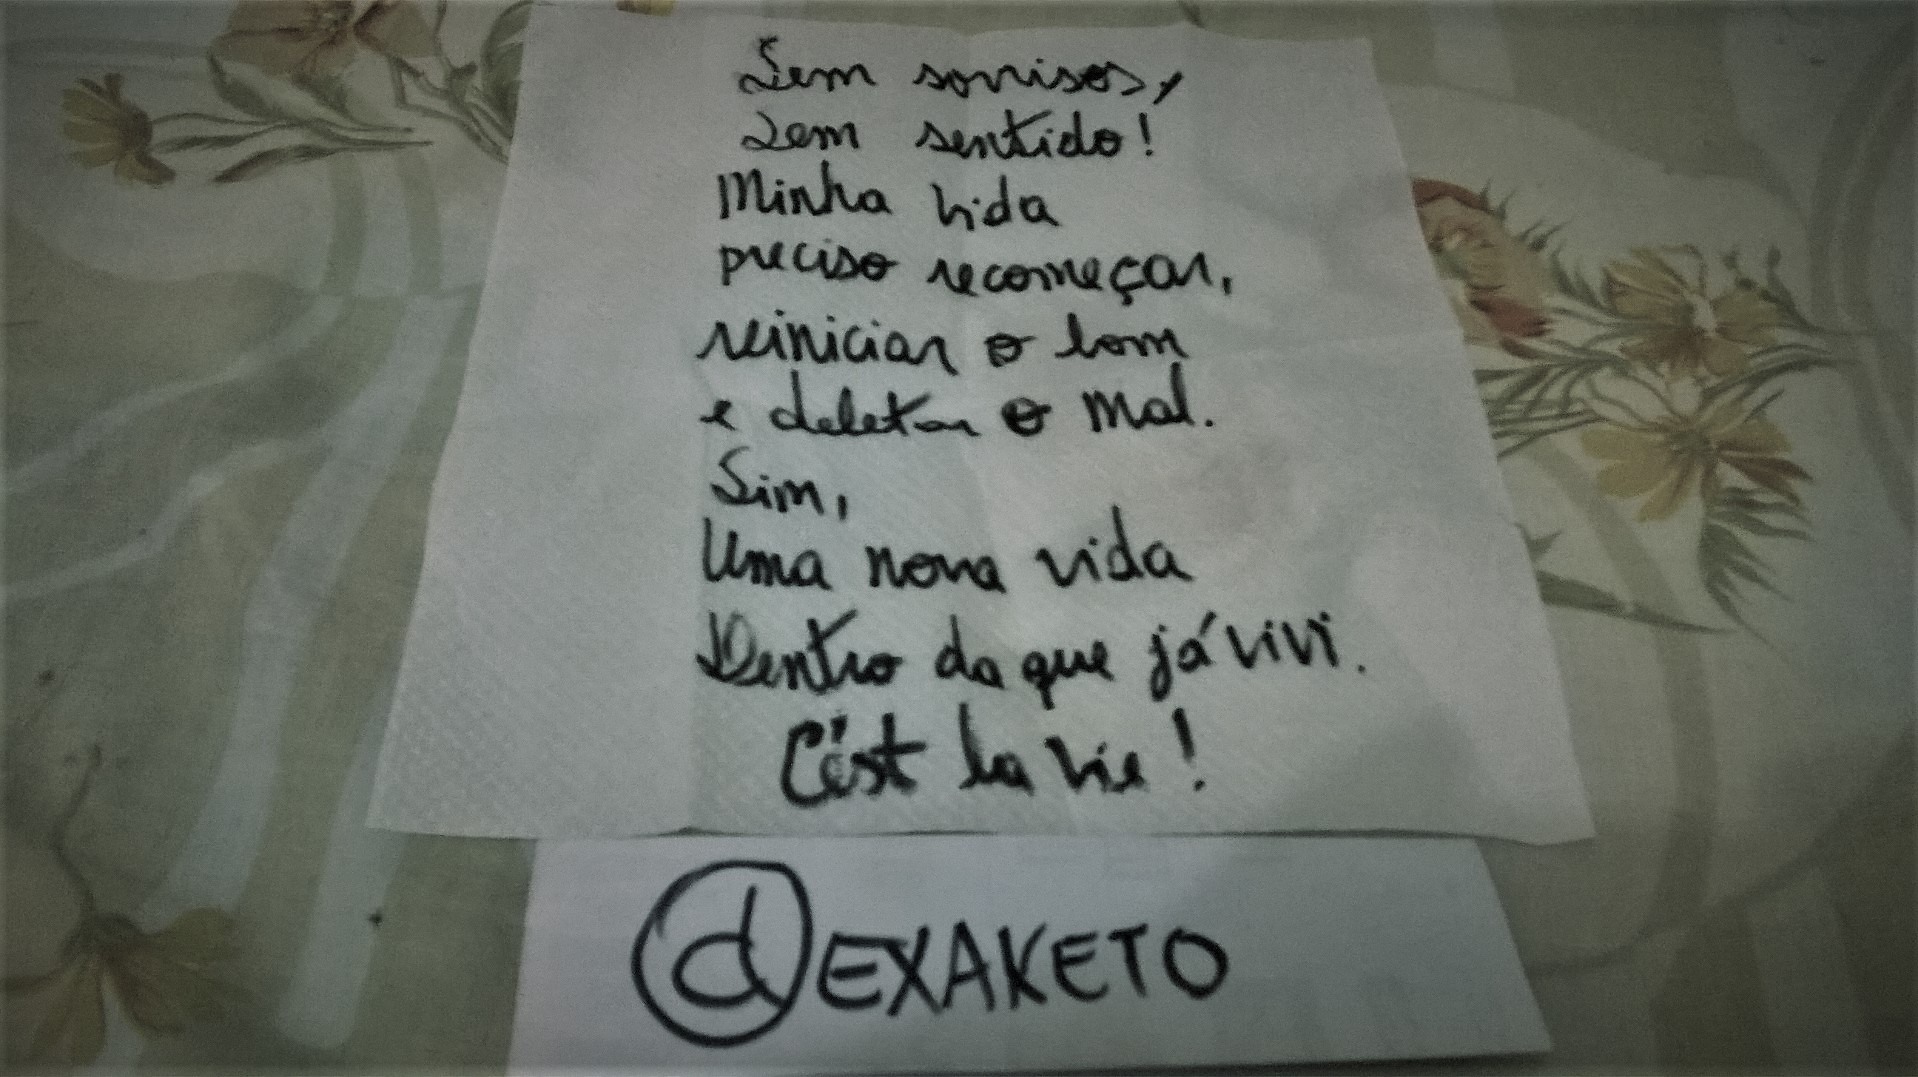 Sem sorrisos,
Sem sentido!
Minha vida
preciso recomeçar,
reiniciar o bom
e deletar o mal.
Sim,
Uma nova vida
Dentro da que já vivi.
C'est la vie!
@EXAKETO